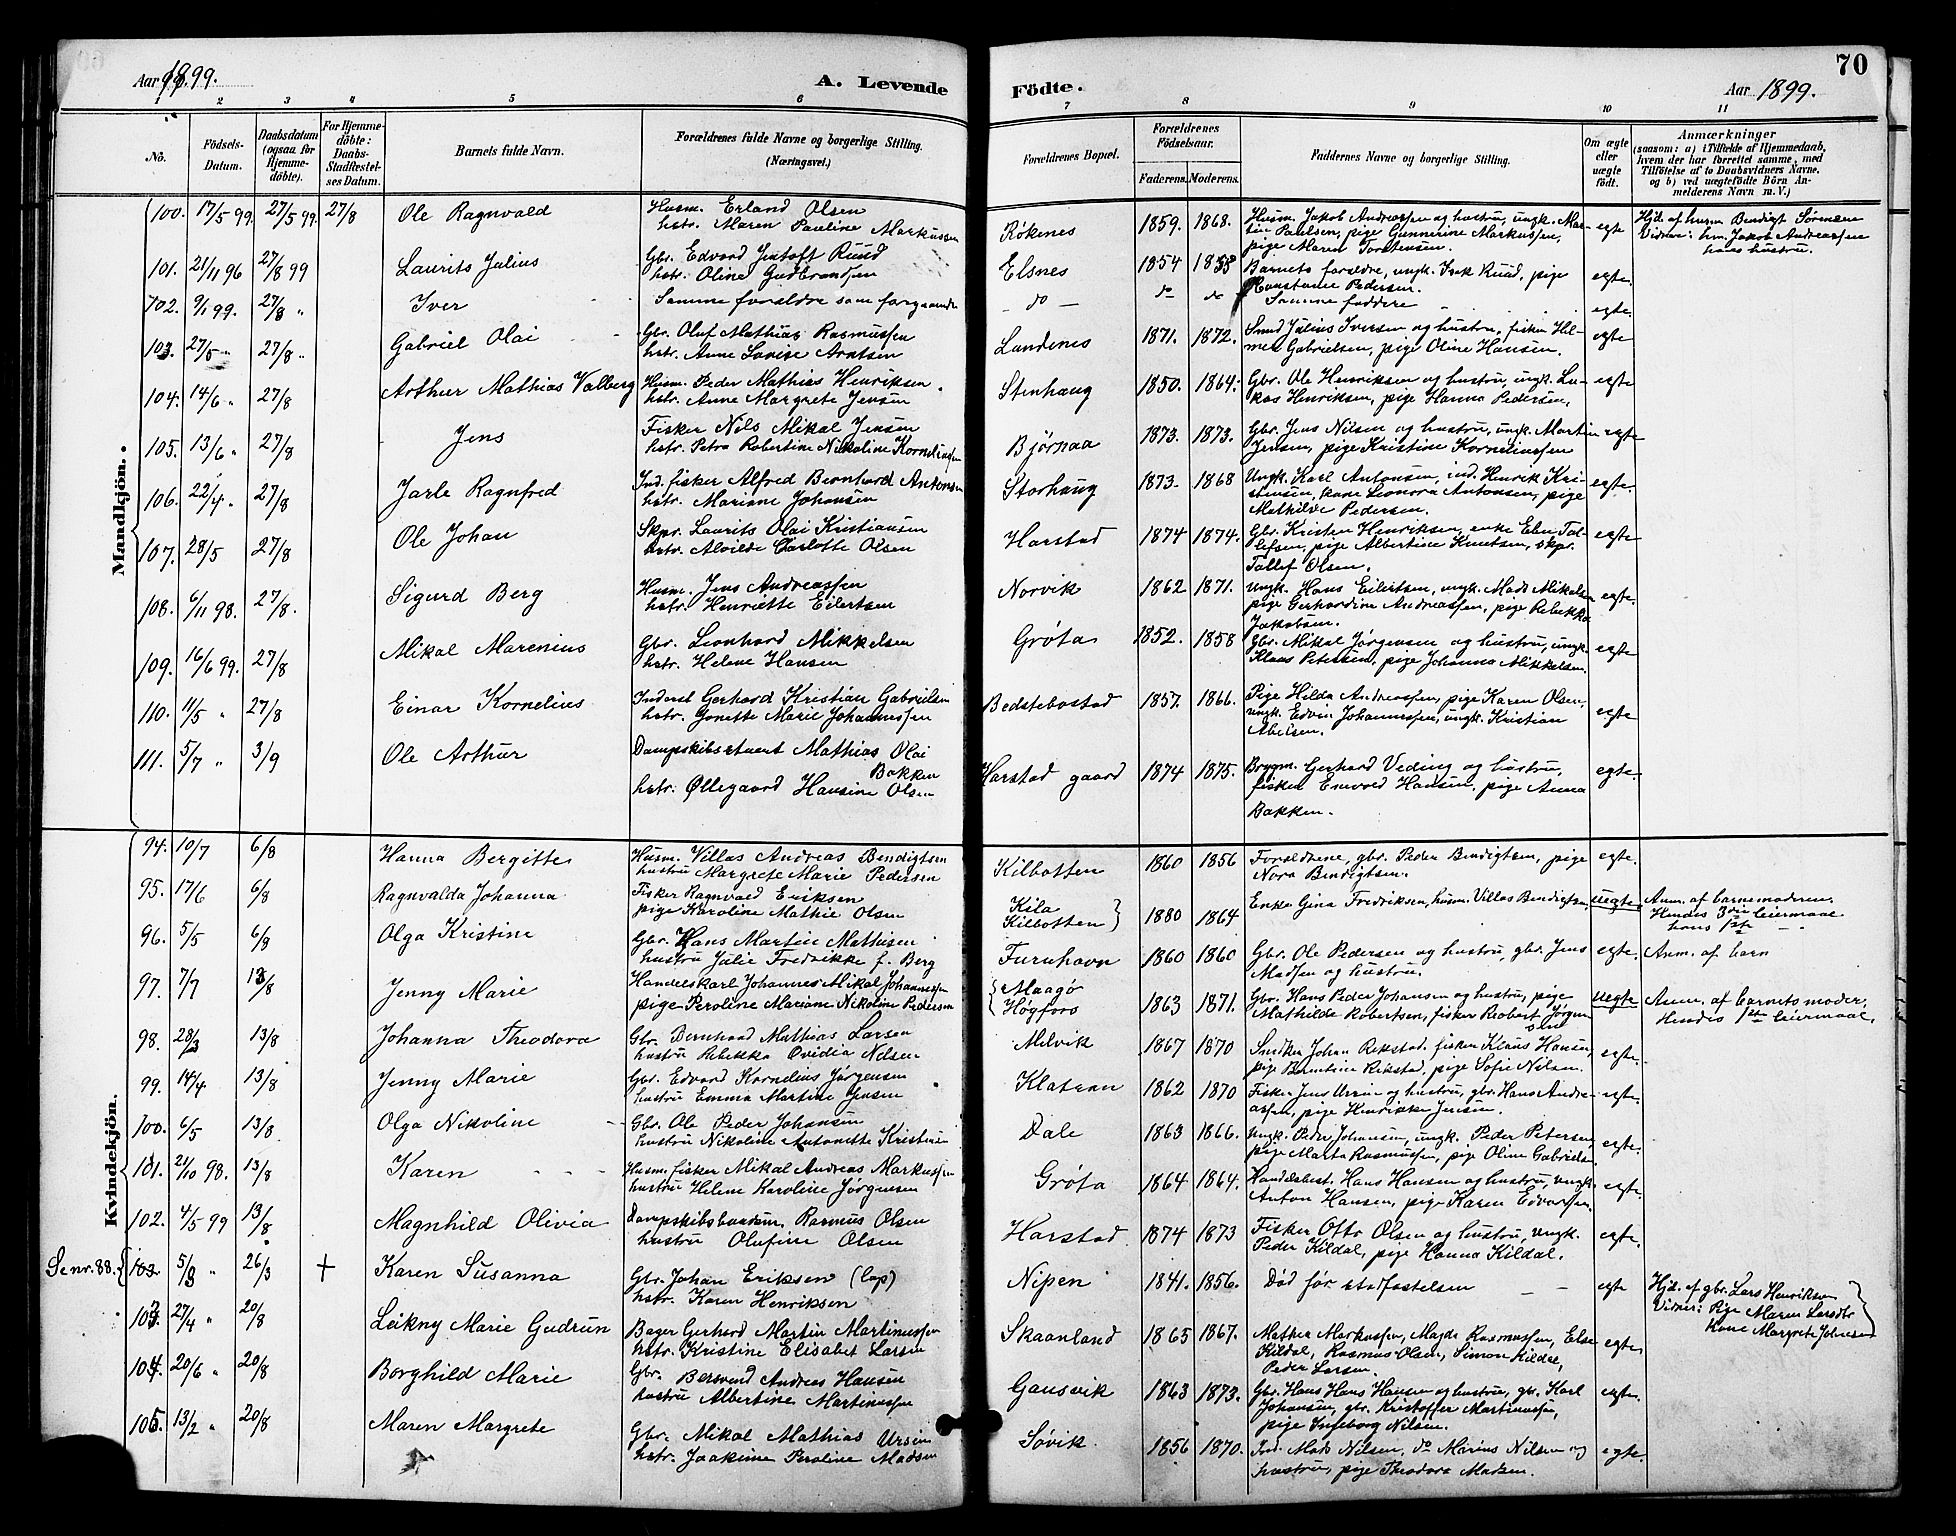 70
Aar 1899.
A. Levende
Födte.
Aar 1899.
1 2 3 4 5 6 7 8 9 10 11
No.
Födsels-
Datum.
Daabsdatum
(ogsaa for
Hjemme-
döbte).
For Hjemme-
döbte:
Daabs-
Stadfæstel-
ses Datum.
Barnets fulde Navn.
Forældrenes fulde Navne og borgerlige Stilling.
(Næringsvei.)
Forældrenes Bopæl.
Forældrenes
Födselsaar.
Faderens. Moderens.
Faddernes Navne og borgerlige Stilling.
Om ægte
eller
uægte
födt.
Anmærkninger
(saasom: a) i Tilfælde af Hjemmedaab,
hvem der har forrettet samme, med
Tilföielse af to Daabsvidners Navne,
og b) ved uægtefödte Börn An-
melderens Navn m. V.)
Mandkjön.
100. 17/5 99. 27/5 99. 27/8 Ole Ragnvald Husm. Erland Olsen
hstr. Maren Pauline Markussen
Røkenes 1859. 1868. Husm. Jakob Andreassen og hustru, ungk. Mar-
tin Paulsen, pige Gunnerine Markussen,
pige Maren Torstensen. egte
Hjd. af husm Bendigt Sørensen
Vidner: hm Jakob Andreassen
hans hustru.
101. 21/11 96 27/8 99 Laurits Julius Gbr. Edvard Justoft Ruud
hstr. Oline Gudbrandsen
Elsnes 1854 1858 Barnets forældre, ungk. Isak Ruud, pige
Konstanse Pedersen. egte.
102. 9/1 99. 27/8 " Iver Samme forældre som forgaaende
do do do Samme faddere egte.
103. 27/5 " 27/8 " Gabriel Olai Gbr. Oluf Mathias Rasmussen
hstr. Anne Lovise Arntsen
Lundenes 1871. 1872. Smed Julius Iversen og hustru, fisker Hil-
mer Gabrielsen, pige Oline Hansen. egte
104. 14/6 " 27/8 Arthur Mathias Valberg Husm. Peder Mathias Henriksen
hstr. Anne Margrete Jensen
Stenhaug 1850. 1864. Gbr. Ole Henriksen og hustru, ungk. Lu-
kas Henriksen, pige Hanna Pedersen. egte
105. 13/6 " 27/8 Jens Fisker Nils Mikal Jensen
hstr. Petra Robertine Nikoline Korneliussen
Bjørnaa 1873. 1873. Gbr. Jens Nilsen og hustru, ungk. Martin
Jensen, pige Kristine Korneliussen egte
106. 22/4 " 27/8 Jarle Ragnfred Ind. fisker Alfred Bernhard Antonsen
hstr. Mariane Johansen
Storhaug 1873. 1868 Ungk. Karl Antonsen, ind. Henrik Kri-
stensen, kone Leonora Antonsen, pige
Mathilde Pedersen. egte.
107. 28/5 27/8 Ole Johan Skpr. Laurits Olai Kristiansen
hstr. Alvilde Charlotte Olsen
Harstad 1874 1874. Gbr. Kristen Henriksen, enke Elen Tol-
lefsen, pige Albertine Knutsen, skpr.
Tollef Olsen. egte
108. 6/11 98. 27/8. Sigurd Berg Husm. Jens Andreassen
hstr. Henriette Eilertsen
Norvik 1862 1871. Ungk. Hans Eilertsen, ungk. Mads Mikalsen
pige Gerhardine Andreassen, pige Rebekka
Jakobsen. egte.
109. 16/6 99. 27/8 Mikal Marenius Gbr. Leonhard Mikkelsen
hstr. Helene Hansen
Grøta 1852. 1858 Gbr. Mikal Jørgensen og hustru, ungk.
Klaus Petersen, pige Johanna Mikkelsen. egte
110. 11/5 " 27/8 Einar Kornelius Inderst Gerhard Kristian Gabrielsen
hstr. Jonette Marie Johannessen
Bedstebostad 1857. 1866. Pige Hilda Andreassen, pige Karen Olsen,
ungk. Edvin Johannessen, ungk. Kristian
Abelsen. egte
111. 5/7 " 3/9 Ole Arthur Dampskibsstuert Mathias Olai
Bakken
hstr. Øllegaard Hansine Olsen
Harstad gaard 1874 1875. Brygm. Gerhard Veding og hustru,
fisker Enevold Hansen, pige Anna
Bakken. egte.
Kvindekjön.
94. 10/7 6/8 Hanna Bergitte Husm. Villas Andreas Bendigtsen
hustru Margrete Marie Pedersen
Kilbotten 1860 1856 Forældrene, gbr. Peder Bendigtsen, pige
Nora Bendigtsen. egte.
95. 17/6 6/8 Ragnvalda Johanna Fisker Ragnvald Eriksen
pige Karoline Mathie Olsen
Kila
Kilbotten } 1880 1864 Enke Gina Fredriksen, husm. Villas Bendigtsen, uegte.
Anm. af barnemoderen.
Hendes 3die leiermaal
hans 1ste "
96. 5/5 6/8 Olga Kristine Gbr. Hans Martin Mathisen
hustru Julie Fredrikke f. Berg
Furuhavn 1860 1860 Gbr. Ole Pedersen og hustru, gbr. Jens
Madsen og hustru. egte. Anm. af barn
97. 7/7 13/8 Jenny Marie Handelskarl Johannes Mikal Johannessen
pige Peroline Mariane Nikoline Pedersen
{ Maagø
Høgfors 1863 1871. Gbr. Hans Peder Johansen og hustru, pige
Mathilde Robertsen, fisker Robert Jørgen
sen uegte Anm. af barnets moder.
Hendes 1ste leiermaal.
98. 28/3 13/8 Johanna Theodora Gbr. Bernhard Mathias Larsen
hustru Rebekka Ovidia Nilsen
Melvik 1867 1870 Snedker Johan Rikstad, fisker Klaus Hansen,
pige Berntine Rikstad, pige Sofie Nilsen. egte.
99. 14/4 13/8 Jenny Marie Gbr. Edvard Kornelius Jørgensen
hustru Emma Martine Jensen
Klatran 1862 1870 Fisker Jens Ursin og hustru, gbr. Hans Andre-
assen, pige Henrikke Jensen. egte.
100. 6/5 13/8 Olga Nikoline Gbr. Ole Peder Johansen
hustru Nikoline Antonette Kristine
Dale 1863 1866. Ungk. Peder Johansen, ungk. Peder Petersen
pige Marta Rasmussen, pige Oline Gabrielsen. egte.
101. 21/10 98. 13/8 Karen Husm. fisker Mikal Andreas Markussen
hustru Helene Karoline Jørgensen
Grøta 1864 1864. Handelsbest. Hans Hansen og hustru, ungk.
Anton Hansen, pige Karen Edvardsen. egte.
102. 4/5 99 13/8 Magnhild Olivia Dampskibsbaadsm. Rasmus Olsen
hustru Olufine Olsen
Harstad 1874 1873 Fisker Otto Olsen og hustru, ungk.
Peder Kildal, pige Hanna Kildal. egte.
Se nr. 88. { 103 5/3 " 26/3 + Karen Susanna Gbr. Johan Eriksen (lap)
hstr. Karen Henriksen
Nipen 1841. 1856. Død før stadfæstelsen egte
Hjd. af gbr. Lars Henriksen
Vidner: Pige Maren Larsdtr
Kone Margrete Johnsen
103. 27/4 " 20/8 Leikny Marie Gudrun Bager Gerhard Martin Martinussen
hstr. Kristine Elisabet Larsen
Skaanland 1865 1867. Mathea Markussen, Magda Rasmussen, Else
Kildal, Rasmus Olsen, Simon Kildal,
Peder Larsen. egte.
104. 20/6 " 20/8 Borghild Marie Gbr. Bersvend Andreas Hansen
hustru Albertine Martinussen
Gausvik 1863 1873. Gbr. Hans Hans Hansen og hustru, gbr. Karl
Johansen, gbr. Kristoffer Martinussen,
pige Ingeborg Nilsen. egte.
105 13/2 " 20/8 Maren Margrete Gbr. Mikal Mathias Ursin
hstr. Joakime Peroline Madsen
Søvik 1856 1870. Ind. Mads Nilsen, do Marius Nilsen og
hustru, pige Theodora Madsen. egte.